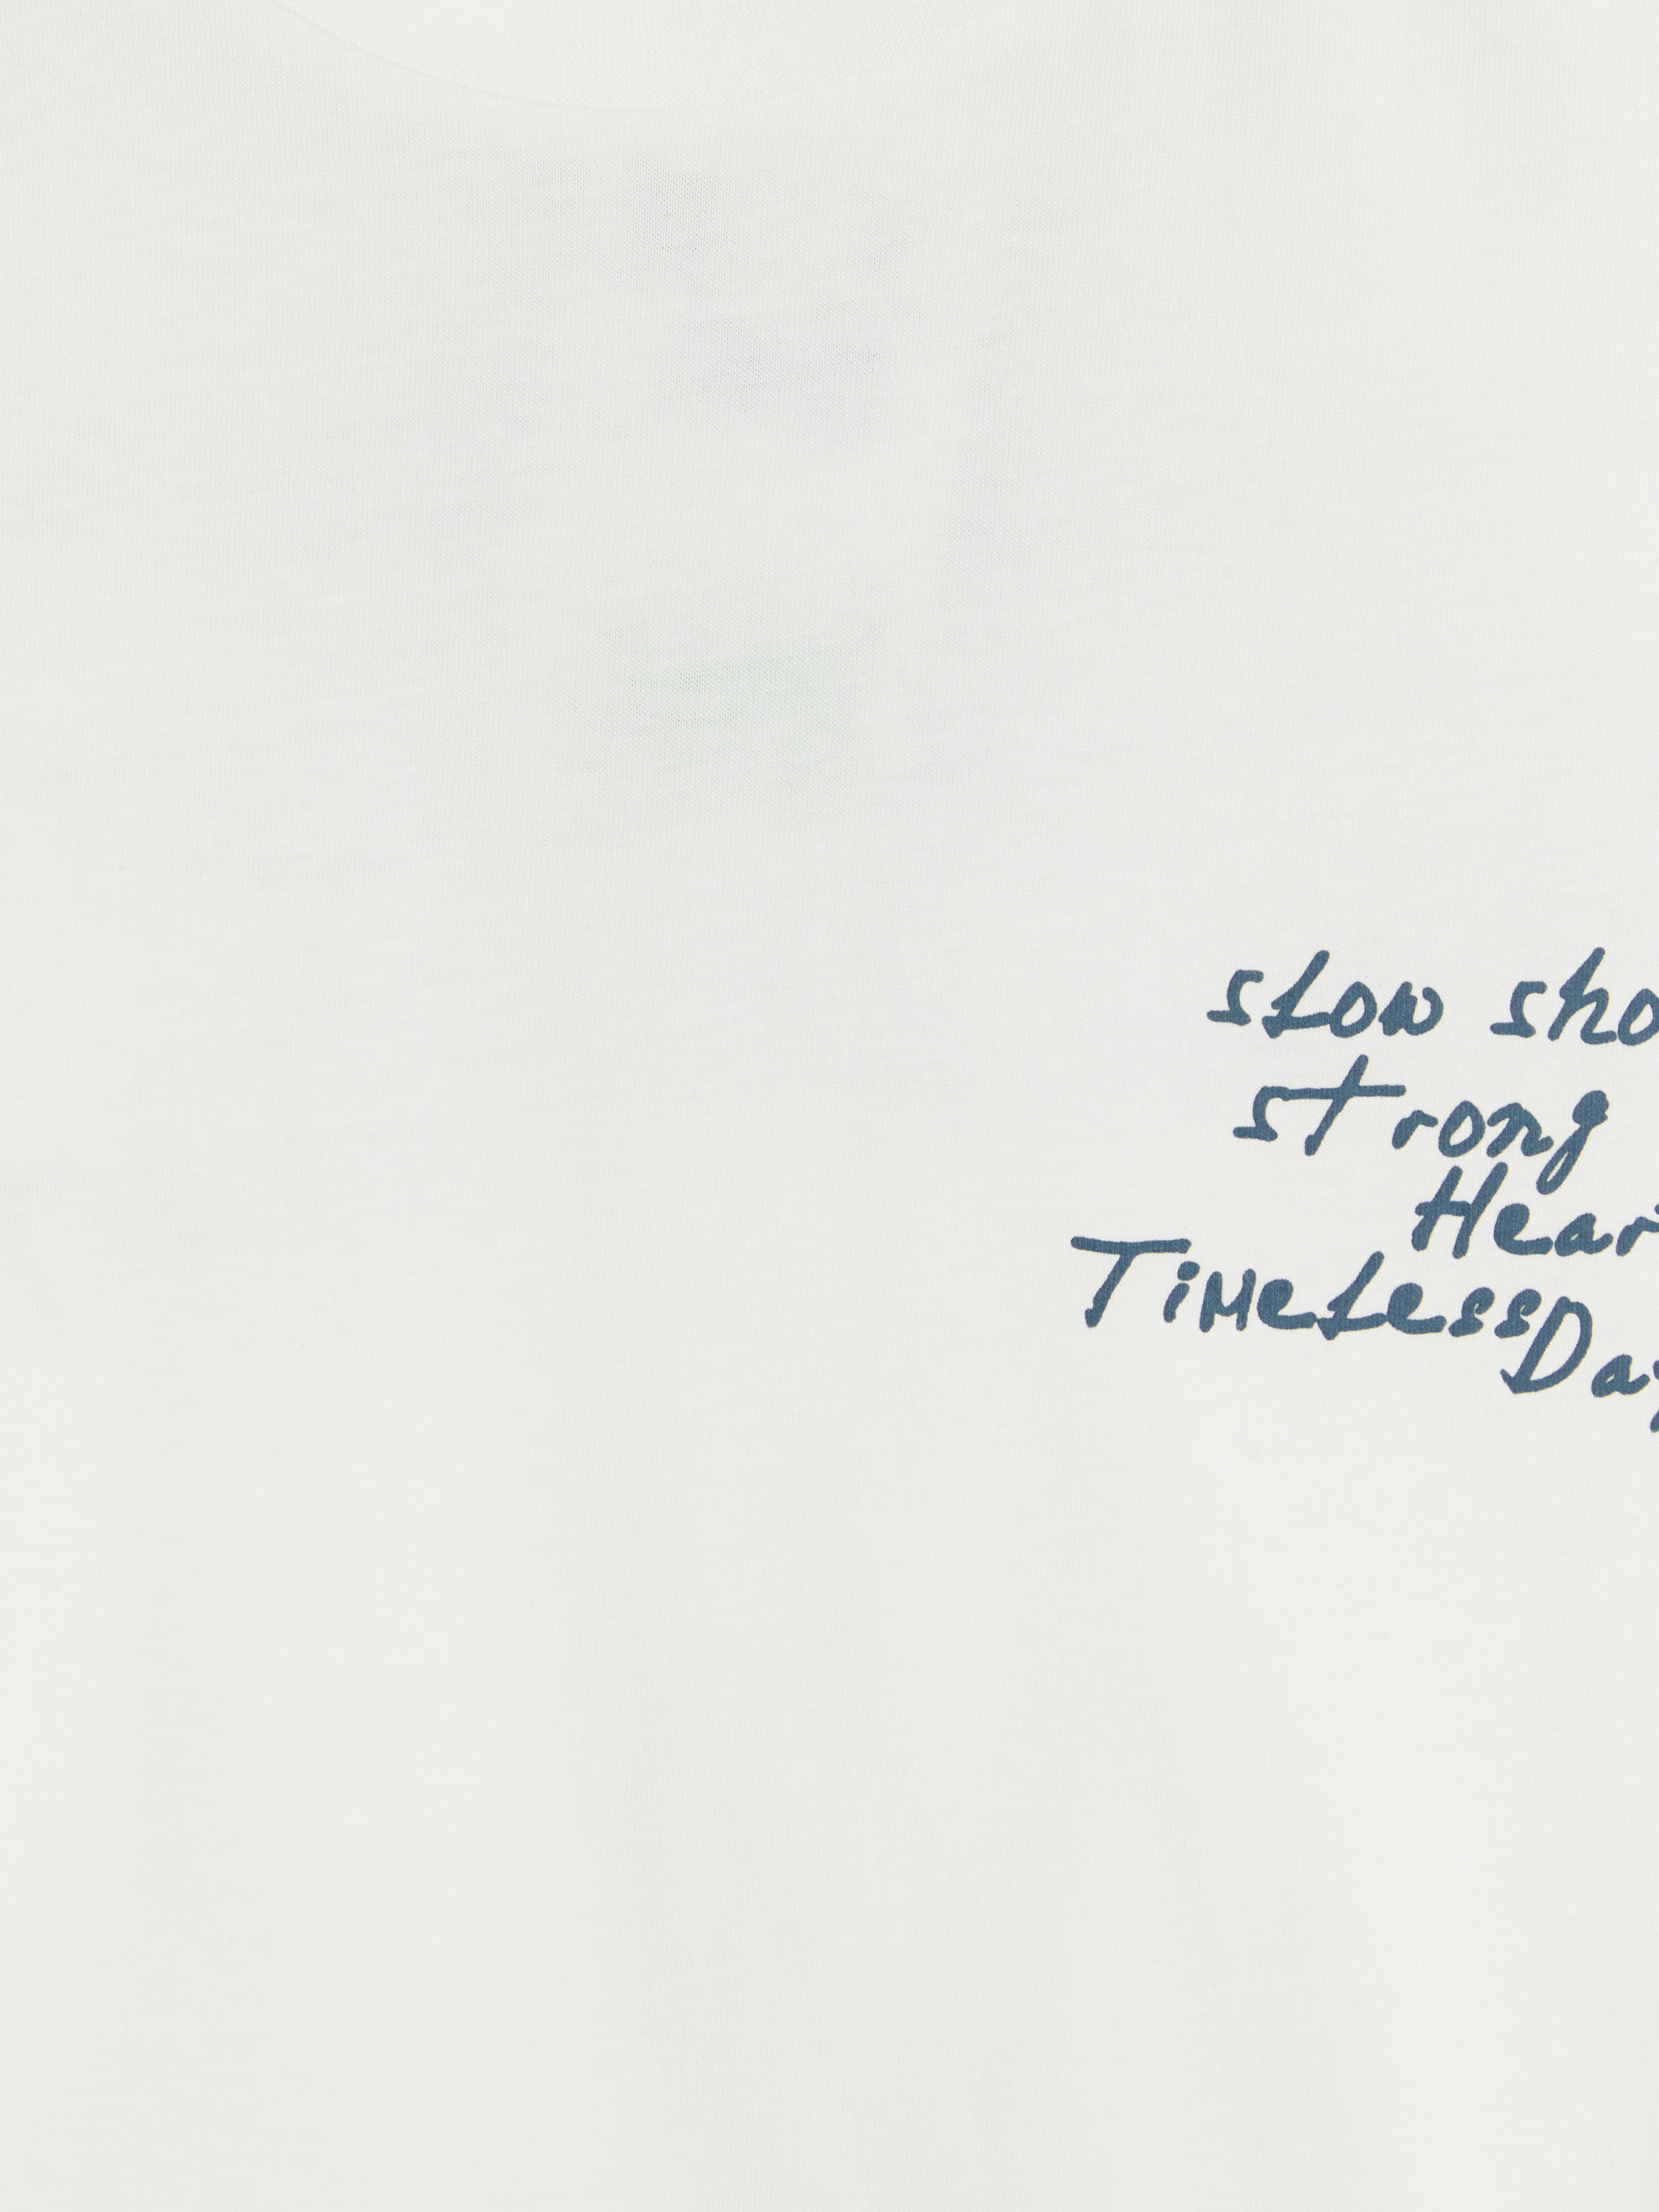 slow sho
strong
Hear
Timeless
Day